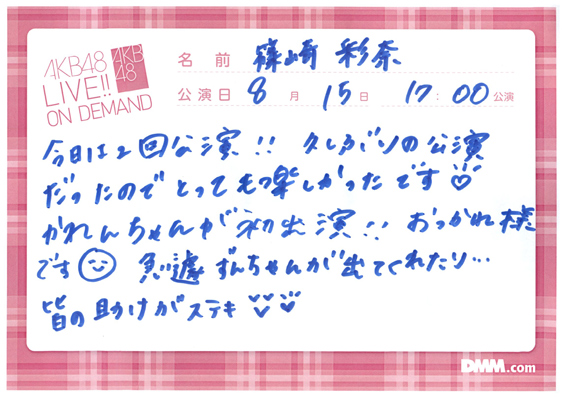 AKB48
LIVE!!
ON DEMAND
AKB
48
名前 篠崎 彩奈
公演日 8月15日 17:00公演
今日は2回公演!! 久しぶりの公演
だったのでとっても楽しかったです♡
かれんちゃんが初出演!! おつかれ様
です 急遽ずんちゃんが出てくれたり…
皆の助けがステキ♡♡
DMM.com